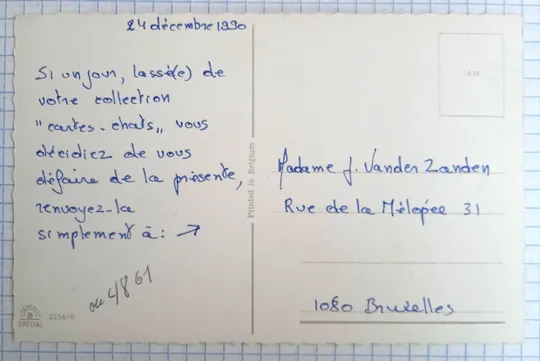 24 décembre 1990
Si un jour, lassé(e) de
votre collection
"cartes-chats„ vous
décidiez de vous
défaire de la présente,
renvoyez-la
simplement à: →
4861
SPECIAL 2256/6
Printed in Belgium
1636
Madame J. Vander Zanden
Rue de la Mélopée 31
1080 Bruxelles